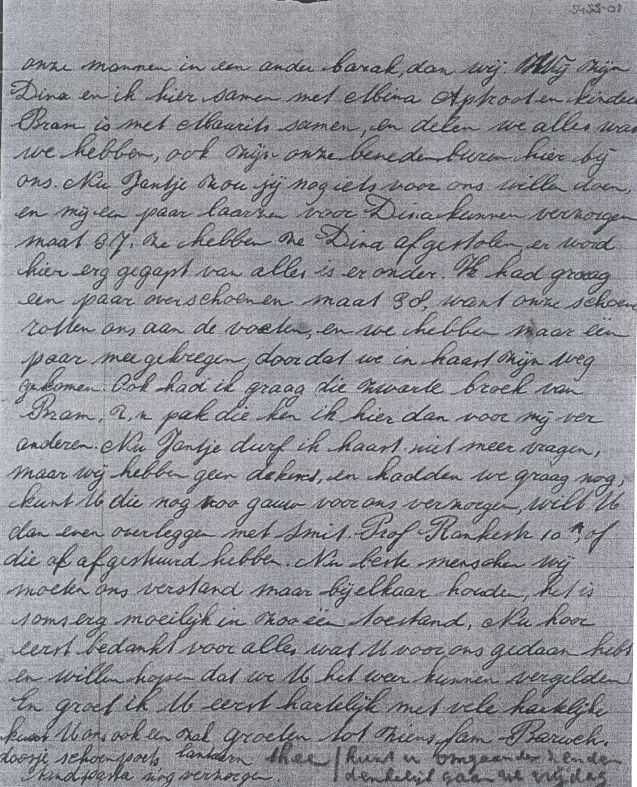 5455-01
onze mannen in een ander barak, dan wij. Wij zijn
Dina en ik hier samen met Mina Aptroot en kinder
Bram is met Maurits samen, en delen we alles wat
we hebben, ook zijn onze benedenburen hier bij
ons. Nu Jantje zou jij nog iets voor ons willen doen,
en mij een paar laarzen voor Dina kunnen verzorgen
maat 37. ze hebben ze Dina afgestolen, er word
hier erg gegapt van alles is er onder. Ik had graag
een paar overschoenen maat 38, want onze schoen
rotten ons aan de voeten, en we hebben maar één
paar meegekregen, doordat we in haast zijn weg
gekomen. Ook had ik graag die zwarte broek van
Bram, z,n pak die ken ik hier dan voor mij ver
anderen. Nu Jantje durf ik haast niet meer vragen,
maar wij hebben geen dekens, en hadden we graag nog,
kunt U die nog zoo gauw voor ons verzorgen, wilt U
dan even overleggen met Smit. Prof Rankestr 10 of
die of afgestuurd hebben. Nu beste menschen wij
moeten ons verstand maar bij elkaar houden, het is
soms erg moeilijk in zoo een toestand. Nu hoor
eerst bedankt voor alles wat U voor ons gedaan hebt
en willen hopen dat we U het weer kunnen vergelden
En groet ik U eerst hartelijk met vele hartelijke
kunt U ons ook een zak groeten tot ziens fam Baruch.
doosje schoenpoets lantaarn thee / kunt u omgaander zenden
tandpasta nog verzorgen. / denkelijk gaan we vrijdag